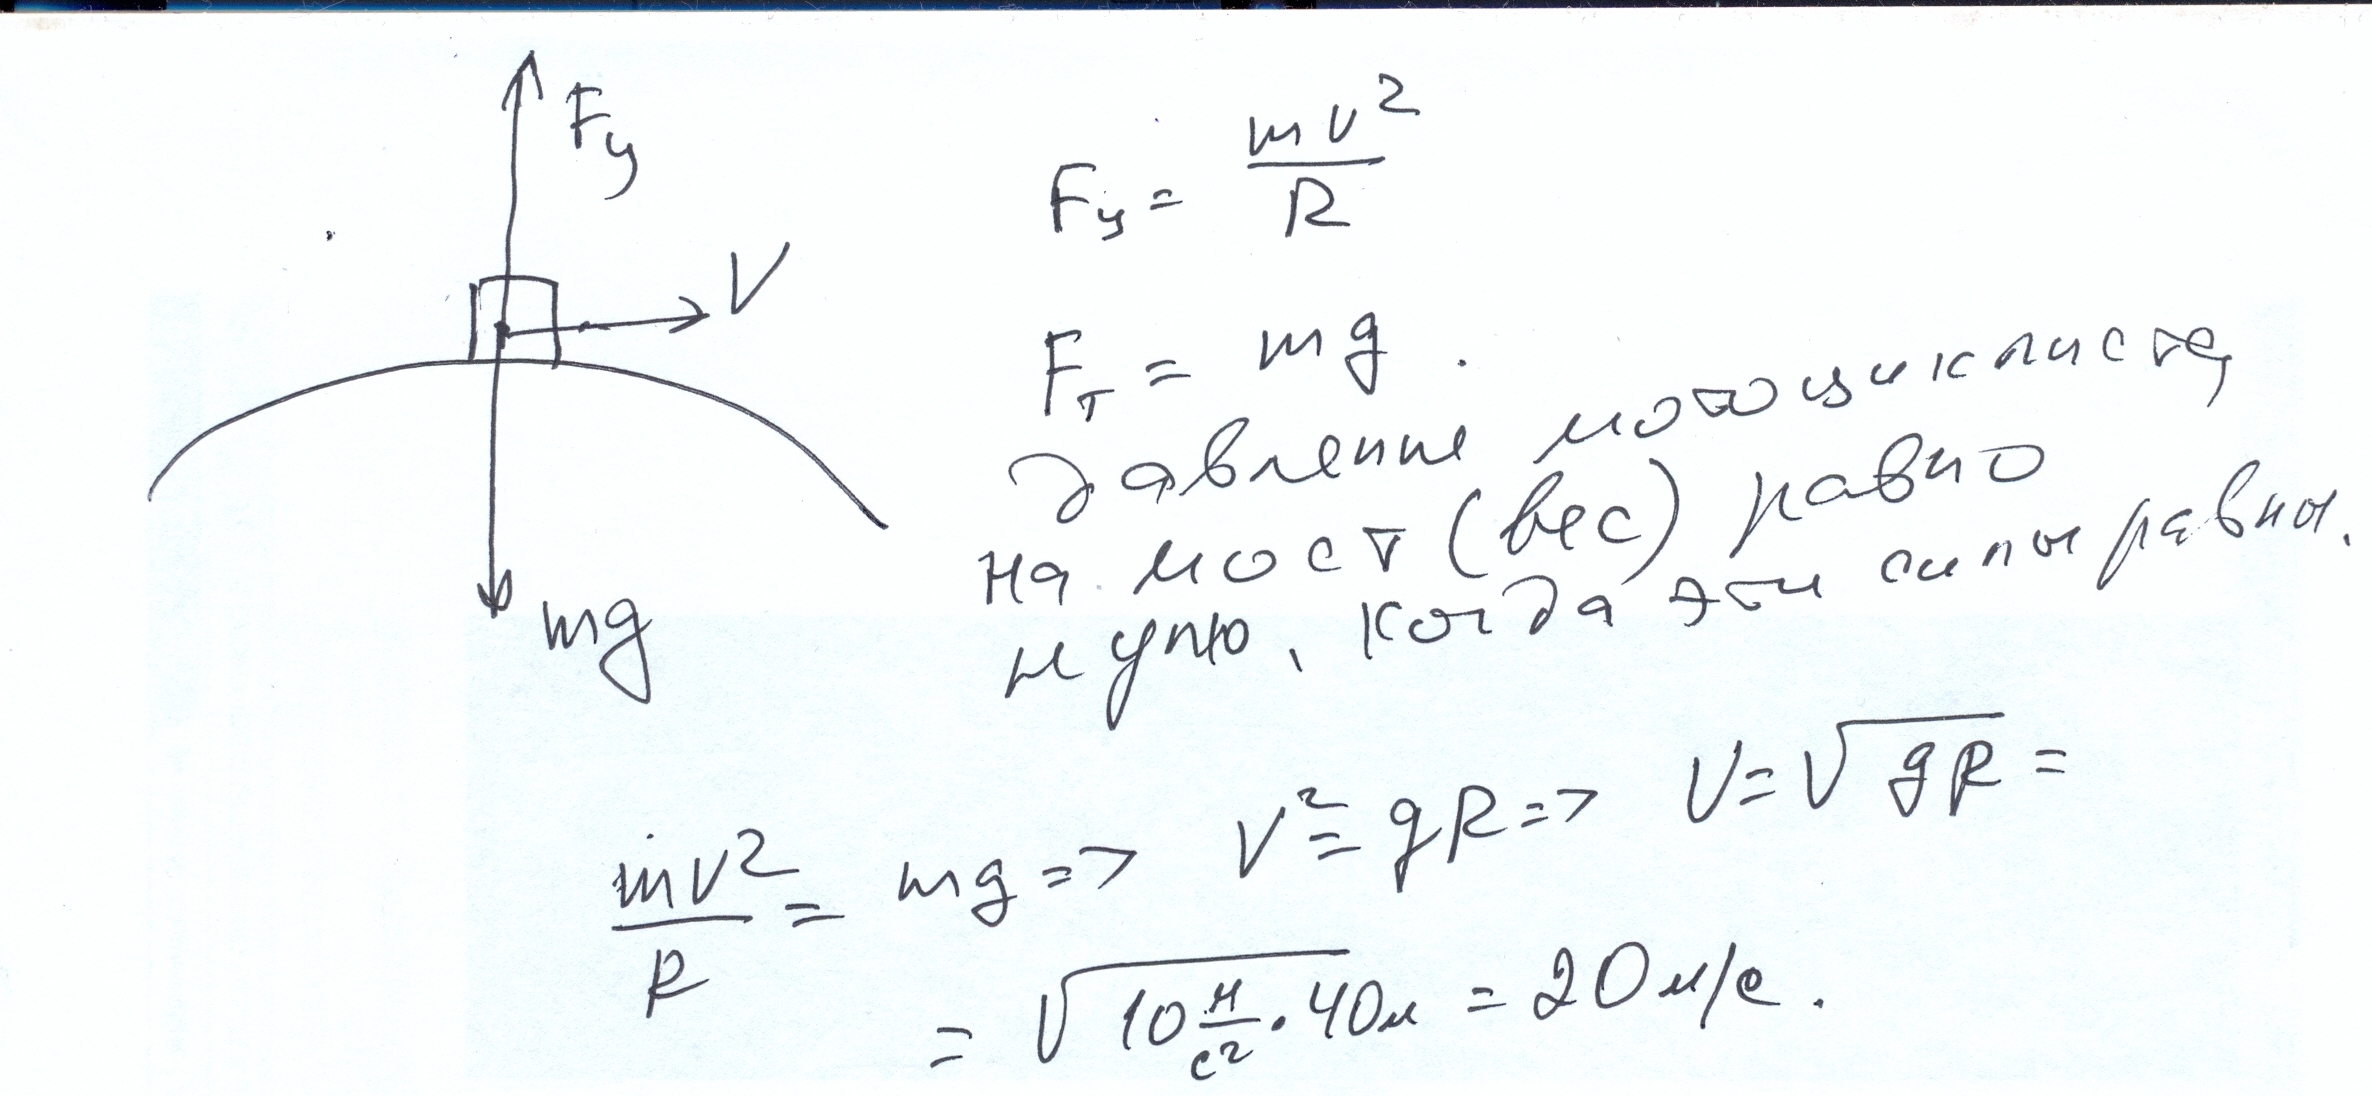 Fц
V
mg
Fц = mv²/R
Fт = mg.
давление мотоциклиста
на мост (вес) равно
нулю, когда эти силы равны.
mv²/R = mg => v² = gR => V = √gR =
= √10 м/с² · 40м = 20 м/с.